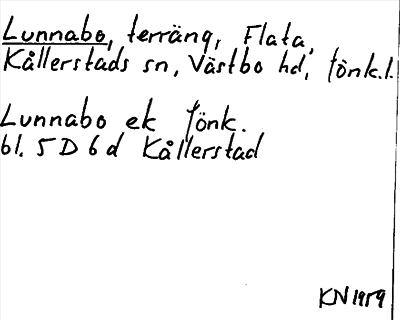 Lunnabo, terräng, Flata,
Kållerstads sn, Västbo hd, Jönk.l.
Lunnabo ek Jönk.
bl. 5 D 6 d Kållerstad
KN 1959